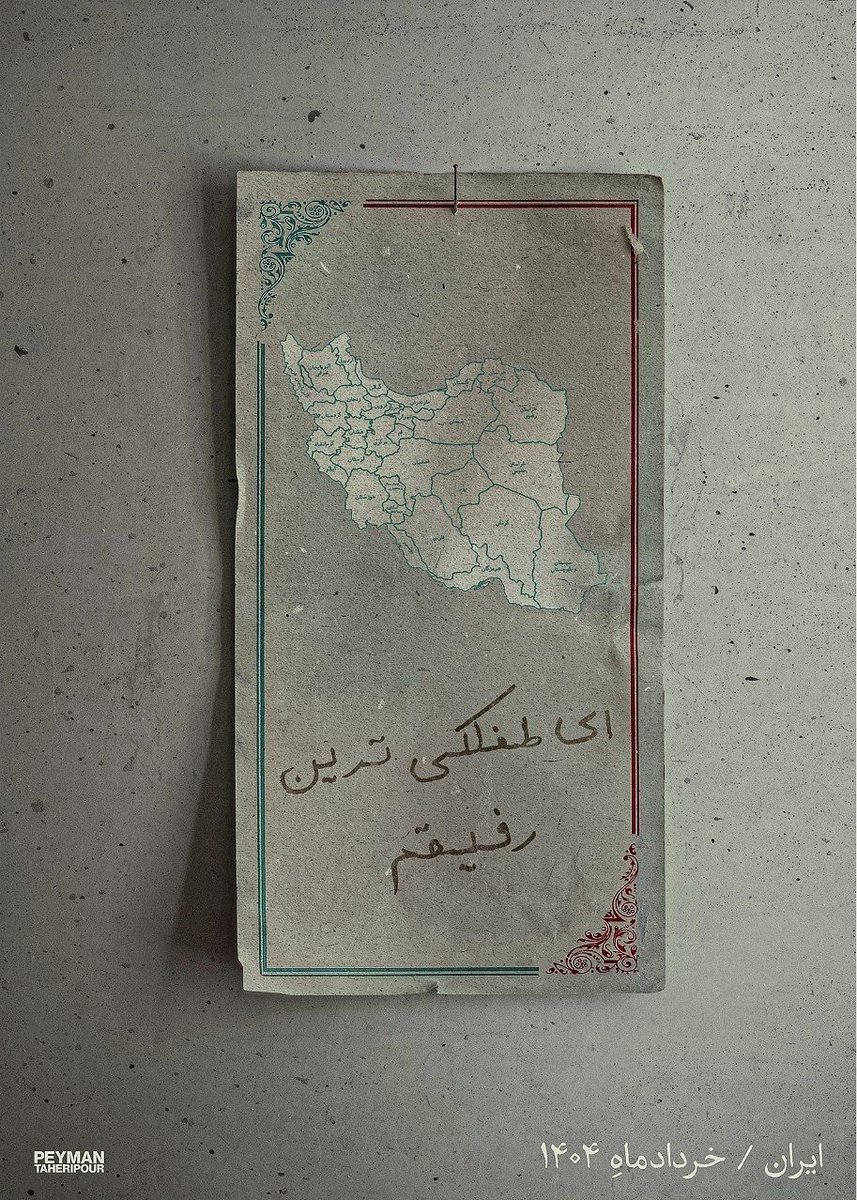 ای طفلکی ترین
رفیقم
ایران / خردادماهِ ۱۴۰۴
PEYMAN
TAHERIPOUR